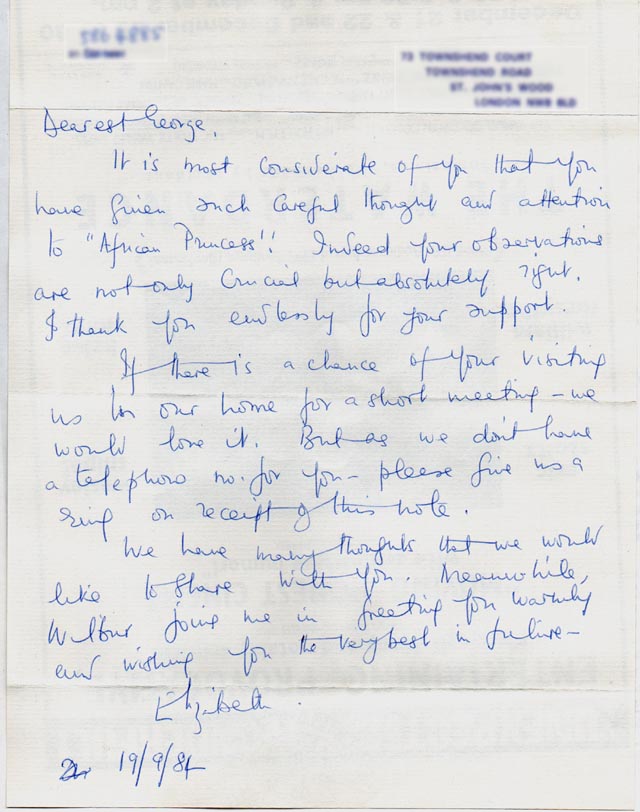 73 TOWNSHEND COURT
TOWNSHEND ROAD
ST. JOHN'S WOOD
LONDON NW8 8LD
Dearest George,
It is most considerate of you that you
have given such careful thought and attention
to "African Princess"! Indeed your observations
are not only crucial but absolutely right.
I thank you endlessly for your support.
If there is a chance of your visiting
us in our home for a short meeting – we
would love it. But as we don't have
a telephone no. for you – please give us a
ring on receipt of this note.
We have many thoughts that we would
like to share with you. Meanwhile,
Wilbur joins me in greeting you warmly
and wishing you the very best in future –
Elizabeth.
19/9/84